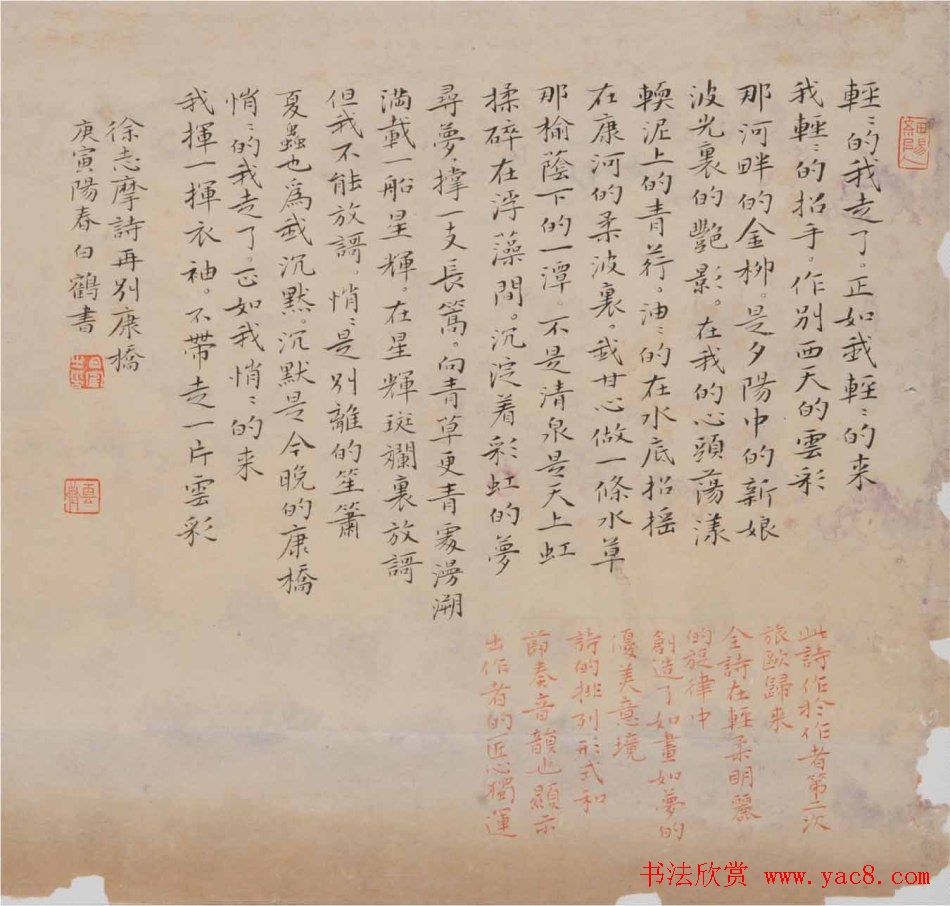 輕〻的我走了。正如我輕〻的来
我輕〻的招手。作别西天的雲彩
那河畔的金柳。是夕陽中的新娘
波光裏的艷影。在我的心頭蕩漾
輭泥上的青荇。油〻的在水底招摇
在康河的柔波裏。我甘心做一條水草
那榆蔭下的一潭。不是清泉是天上虹
揉碎在浮藻間。沉淀着彩虹的夢
尋夢，撑一支長篙。向青草更青處漫溯
满載一船星輝。在星輝斑斕裏放謌
但我不能放謌。悄〻是别離的笙簫
夏蟲也爲我沉默。沉默是今晚的康橋
悄〻的我走了。正如我悄〻的来
我揮一揮衣袖。不帶走一片雲彩
徐志摩詩再别康橋
庚寅陽春白鶴書
此詩作於作者第二次
旅歐歸来
全詩在輕柔明麗
的旋律中
創造了如畫如夢的
優美意境
詩的排列形式和
節奏音韻也顯示
出作者的匠心獨運
书法欣赏 www.yac8.com